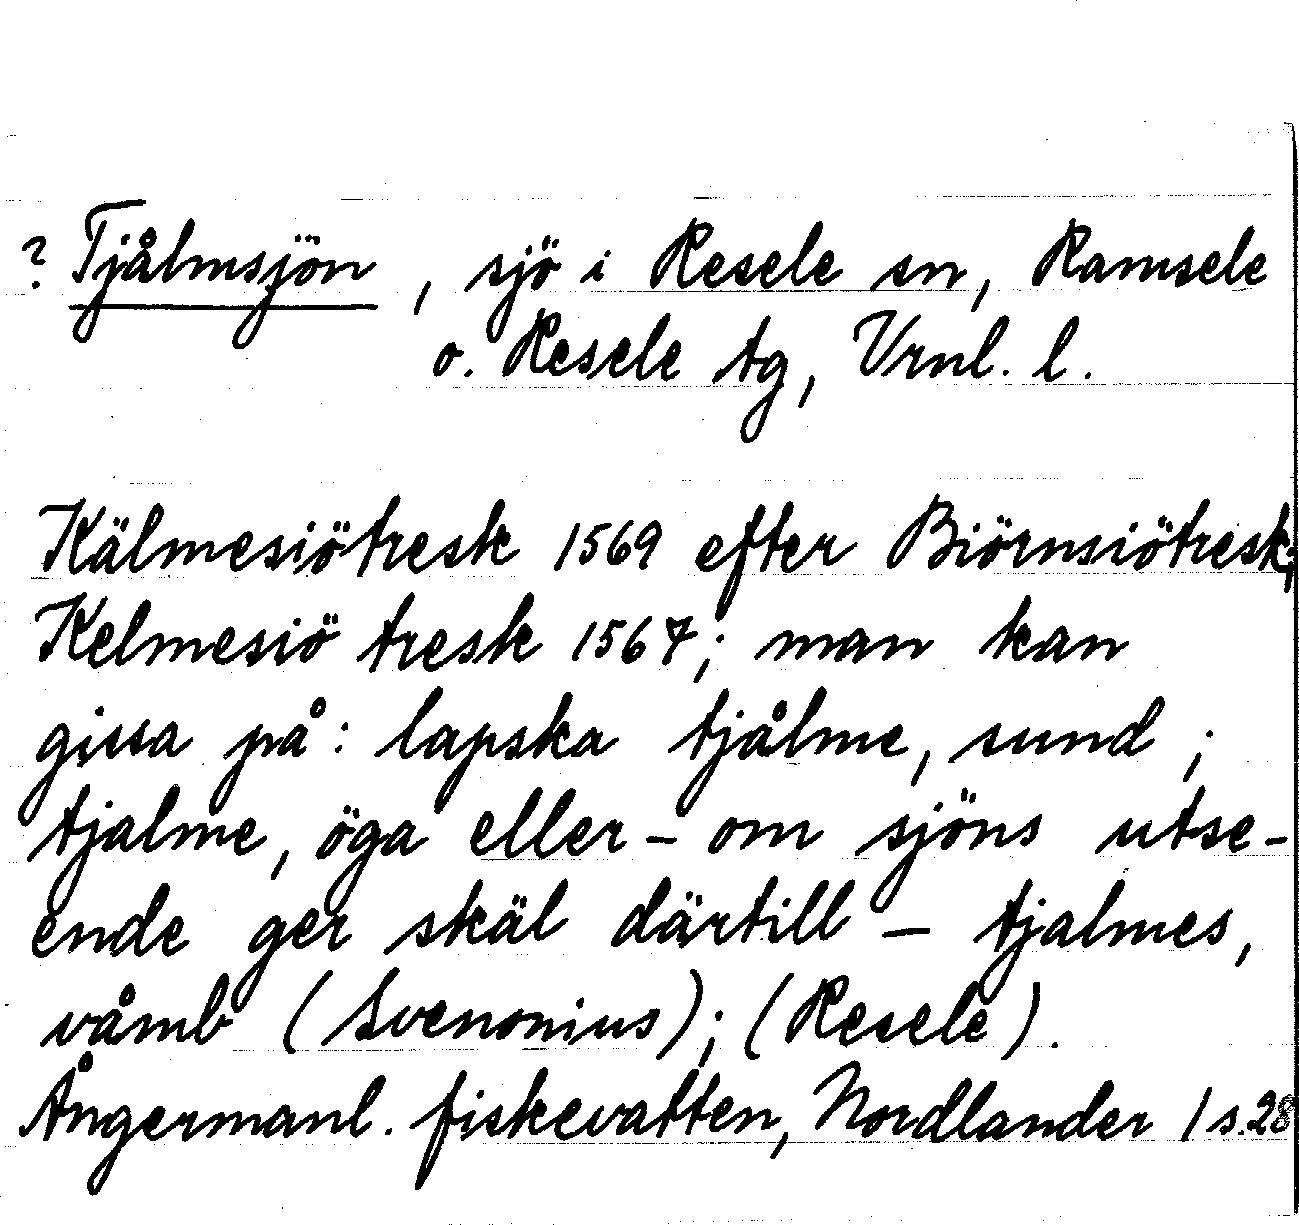 ? Tjålmsjön, sjö i Resele sn, Ramsele
o. Resele tg, Vrnl. l.
Kälmesiötresk 1569 efter Biörnsiötresk;
Kelmesiö tresk 1567; man kan
gissa på: lapska tjålme, sund;
tjalme, öga eller - om sjöns utse-
ende ger skäl därtill - tjalmes,
våmb (Svenonius); (Resele).
Ångermanl. fiskevatten, Nordlander 1 s.28